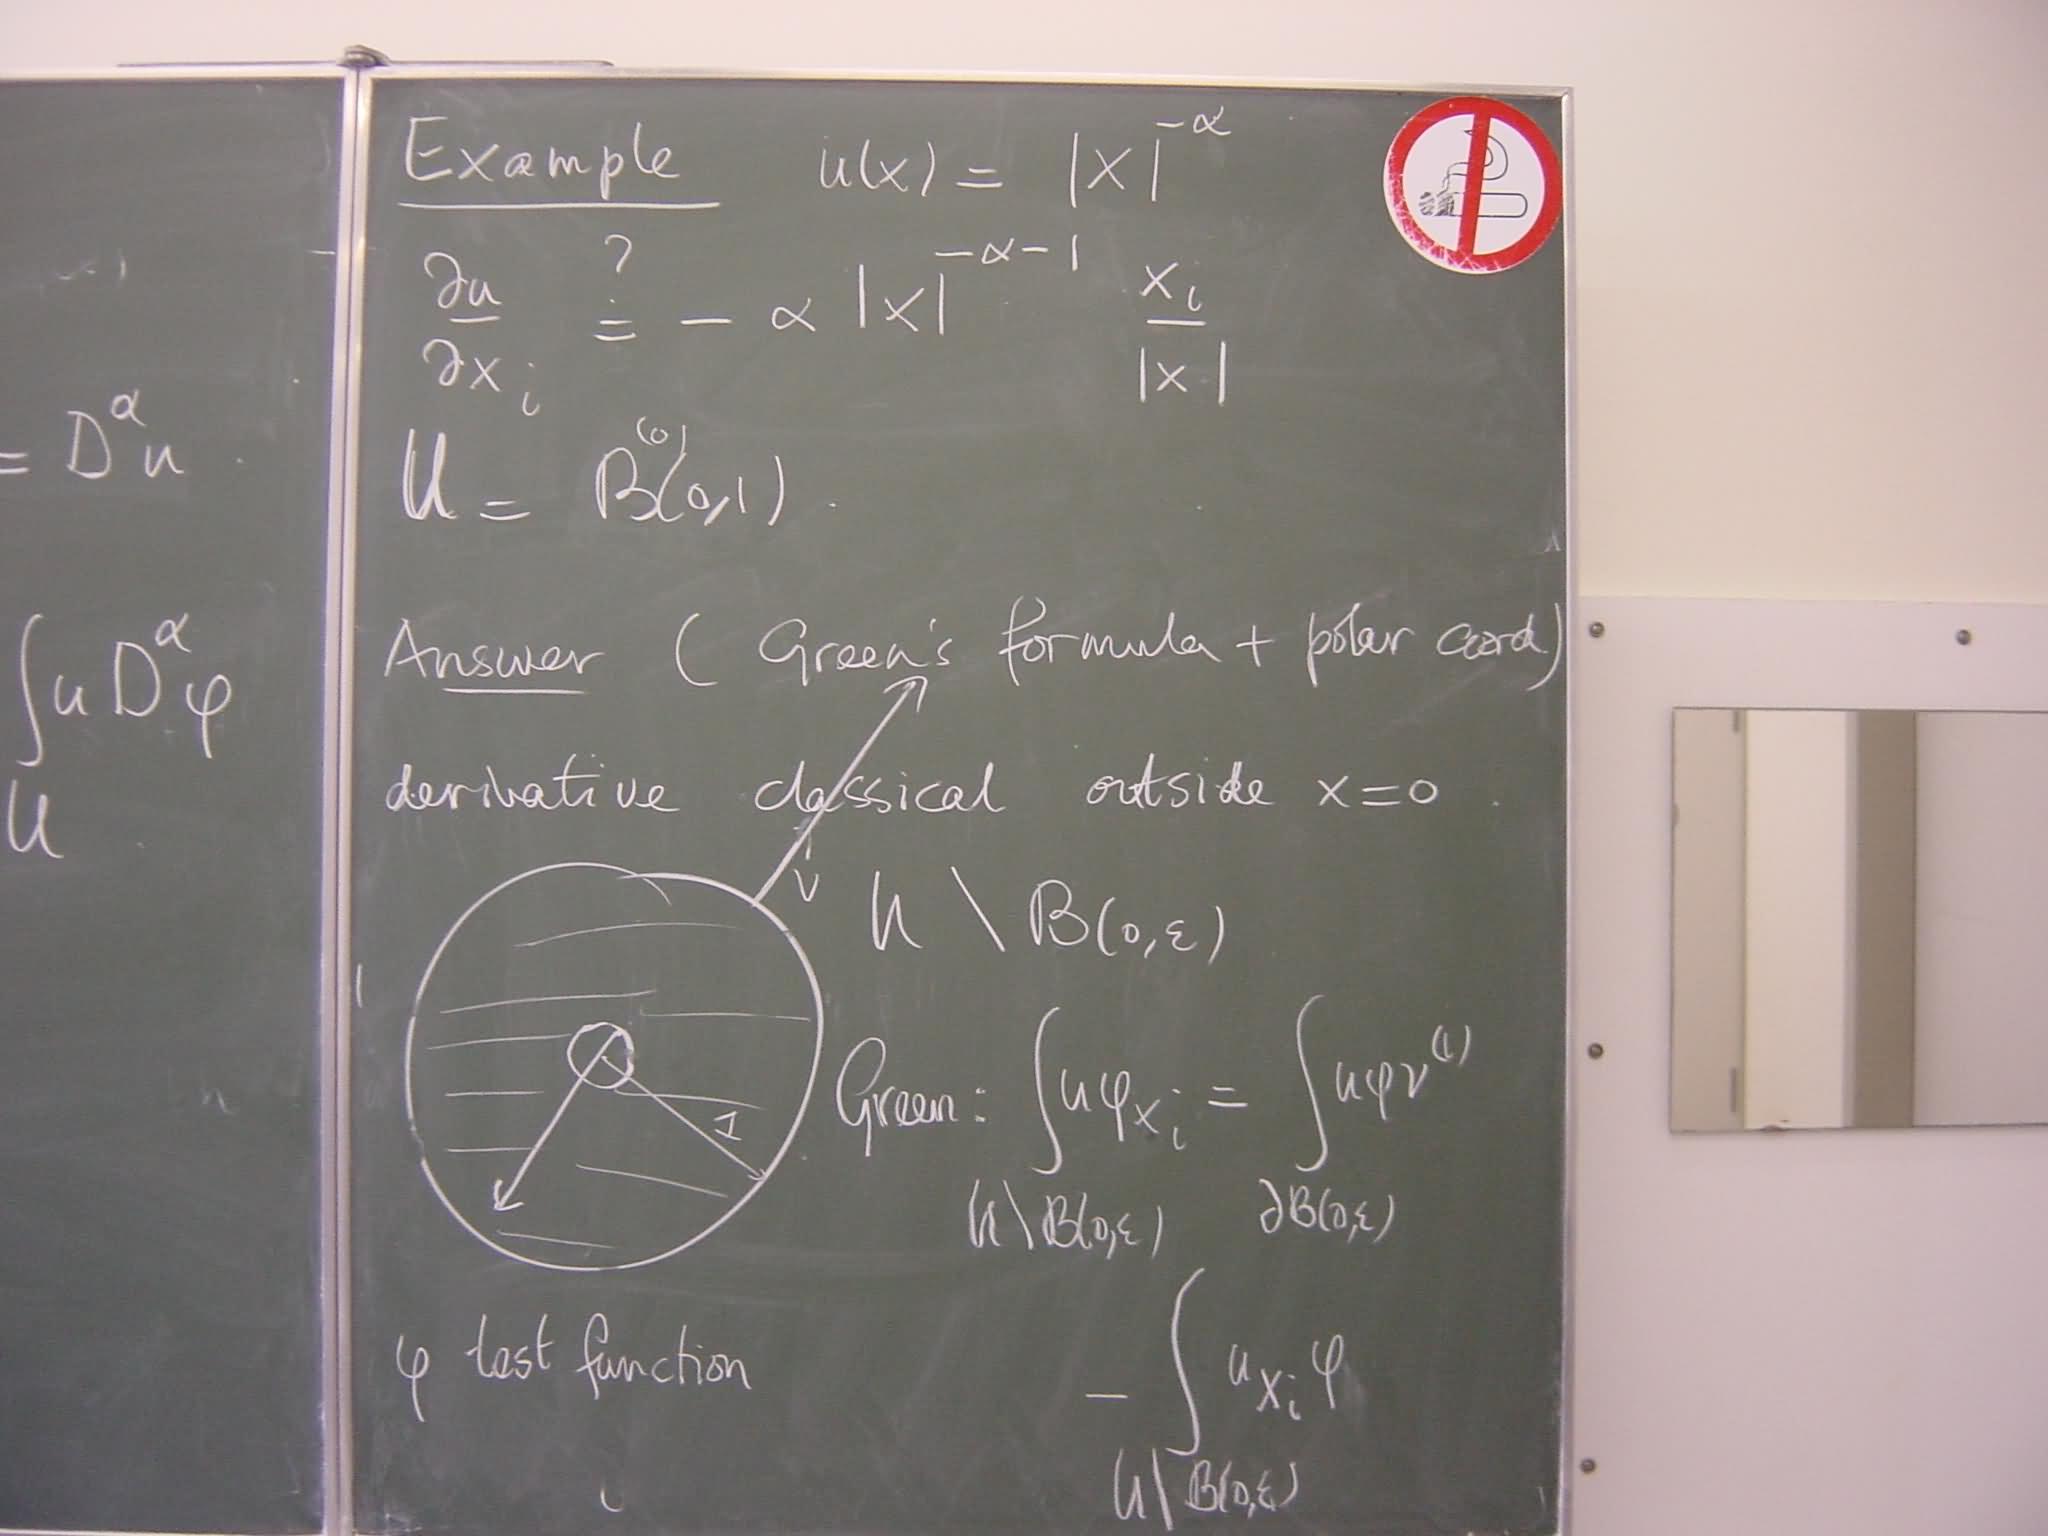 = Dᵅu
∫ u Dᵅφ
U
Example u(x) = |x|^{-α}
∂u/∂x_i ?= - α |x|^{-α-1} x_i/|x|
U = B^{(0)}(0,1).
Answer ( Green's formula + polar coord)
derivative classical outside x=0.
ν U \ B(0,ε)
Green: ∫_{U\B(0,ε)} uφ_{x_i} = ∫_{∂B(0,ε)} uφν^{(i)}
1
φ test function - ∫_{U\B(0,ε)} u_{x_i} φ